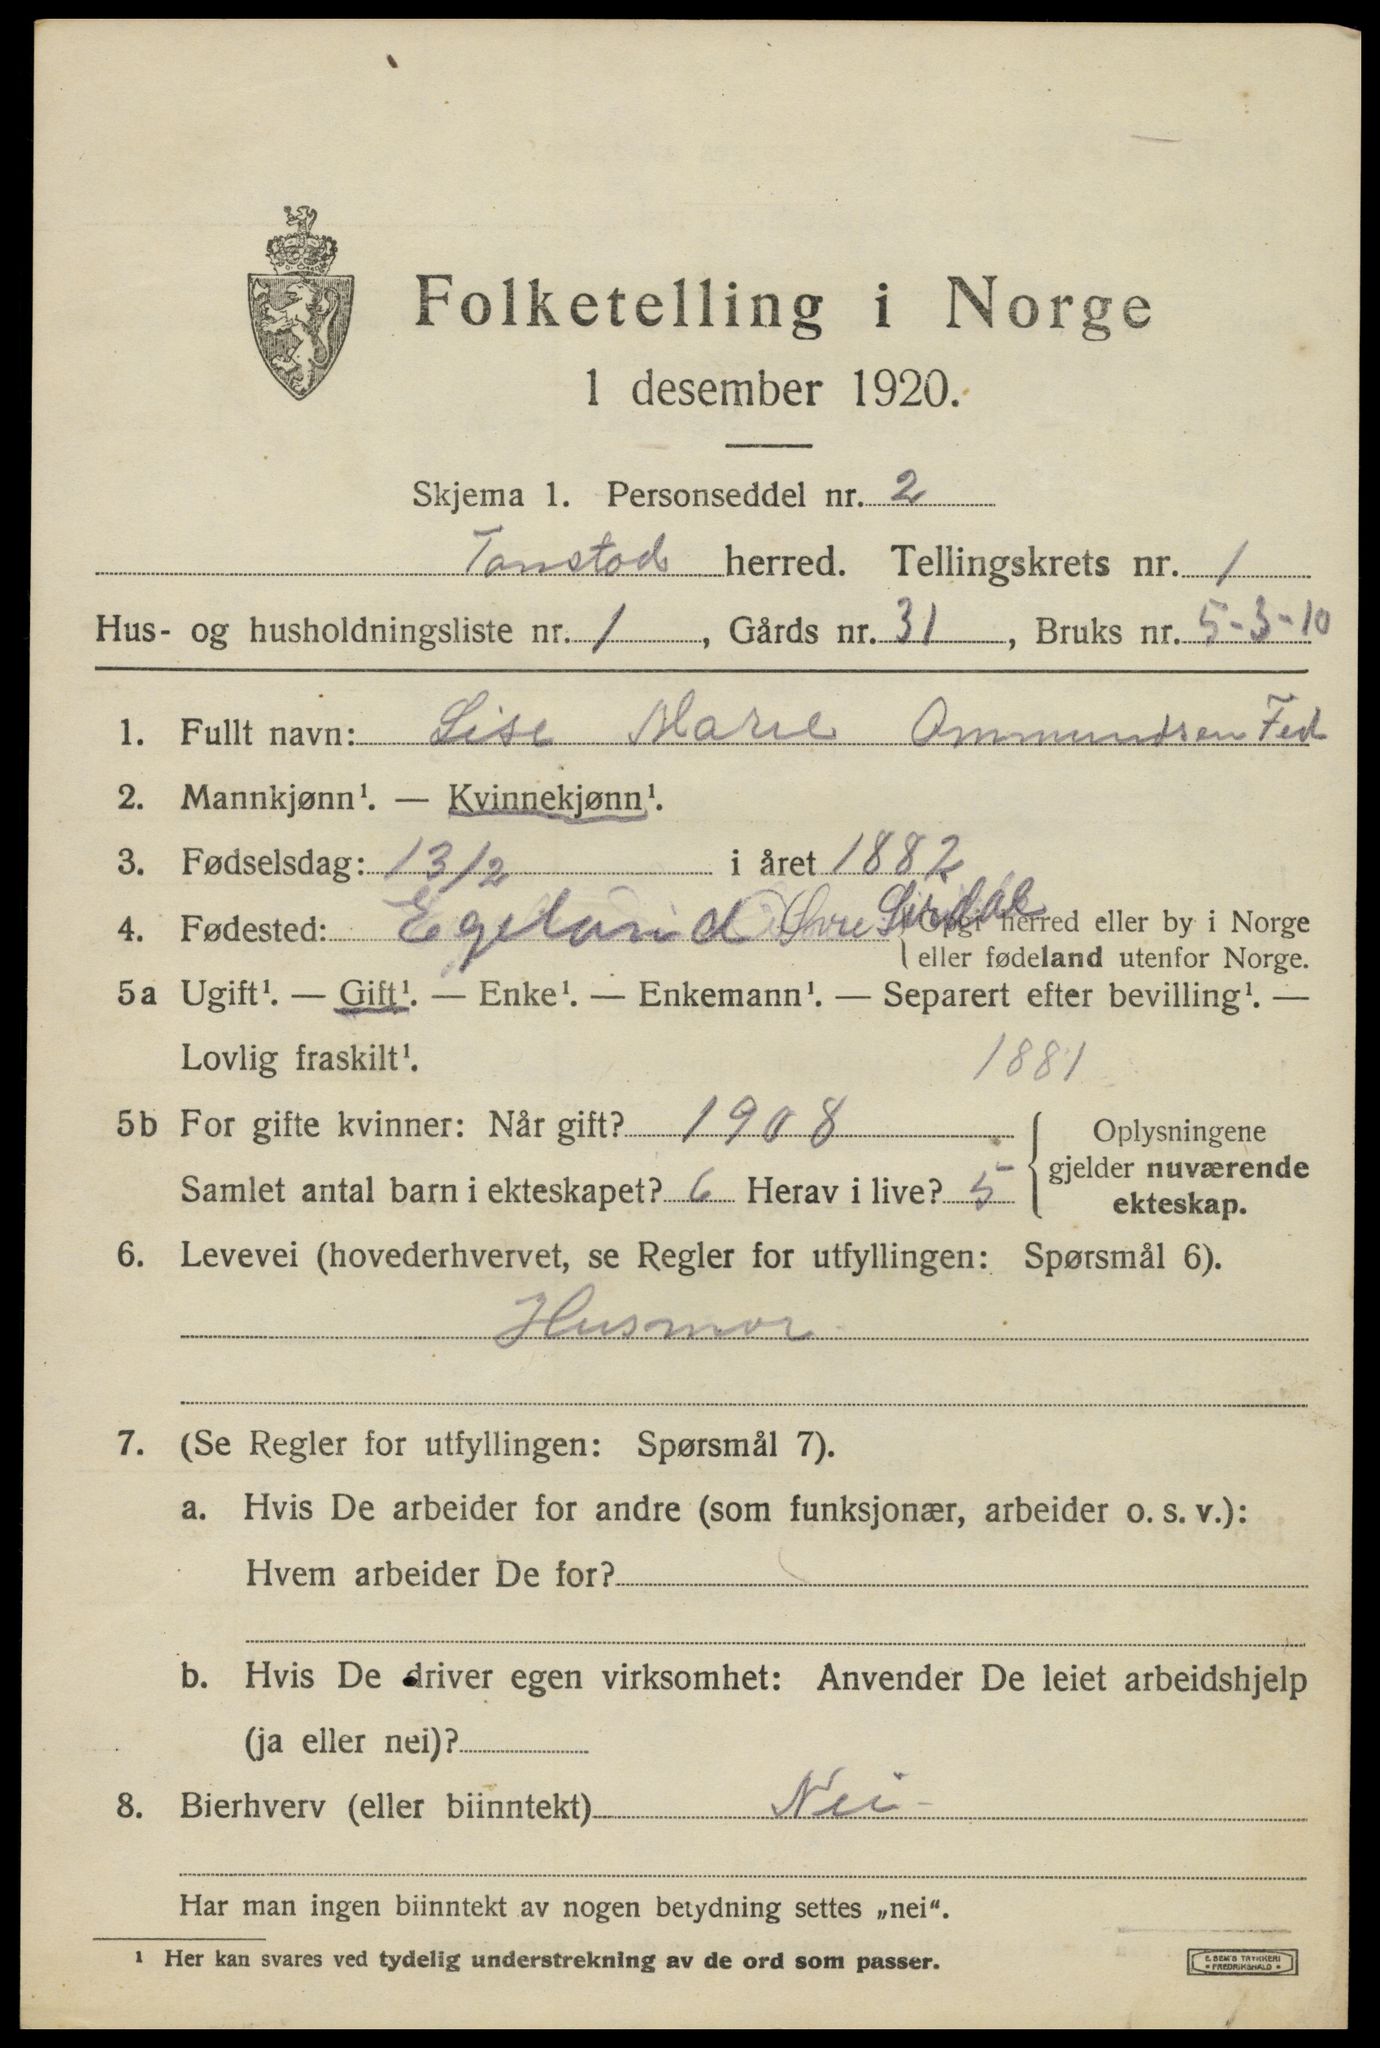 Folketelling i Norge
1 desember 1920.
Skjema 1. Personseddel nr. 2
Tonstad herred. Tellingskrets nr. 1
Hus- og husholdningsliste nr. 1, Gårds nr. 31, Bruks nr. 5-3-10
1. Fullt navn: Lise Marie Ommundsen Fed
2. Mannkjønn¹. — Kvinnekjønn¹.
3. Fødselsdag: 13/2 i året 1882
4. Fødested: Egeland Øvre Sirdal { Opgi herred eller by i Norge
eller fødeland utenfor Norge.
5a Ugift¹. — Gift¹. — Enke¹. — Enkemann¹. — Separert efter bevilling¹. —
Lovlig fraskilt¹. 1881
5b For gifte kvinner: Når gift? 1908
Samlet antal barn i ekteskapet? 6 Herav i live? 5
Oplysningene
gjelder nuværende
ekteskap.
6. Levevei (hovederhvervet, se Regler for utfyllingen: Spørsmål 6).
Husmor
7. (Se Regler for utfyllingen: Spørsmål 7).
a. Hvis De arbeider for andre (som funksjonær, arbeider o. s. v.):
Hvem arbeider De for?
b. Hvis De driver egen virksomhet: Anvender De leiet arbeidshjelp
(ja eller nei)?
8. Bierhverv (eller biinntekt) Nei-
Har man ingen biinntekt av nogen betydning settes „nei“.
¹ Her kan svares ved tydelig understrekning av de ord som passer.
E. SEM'S TRYKKERI
• FREDRIKSHALD •